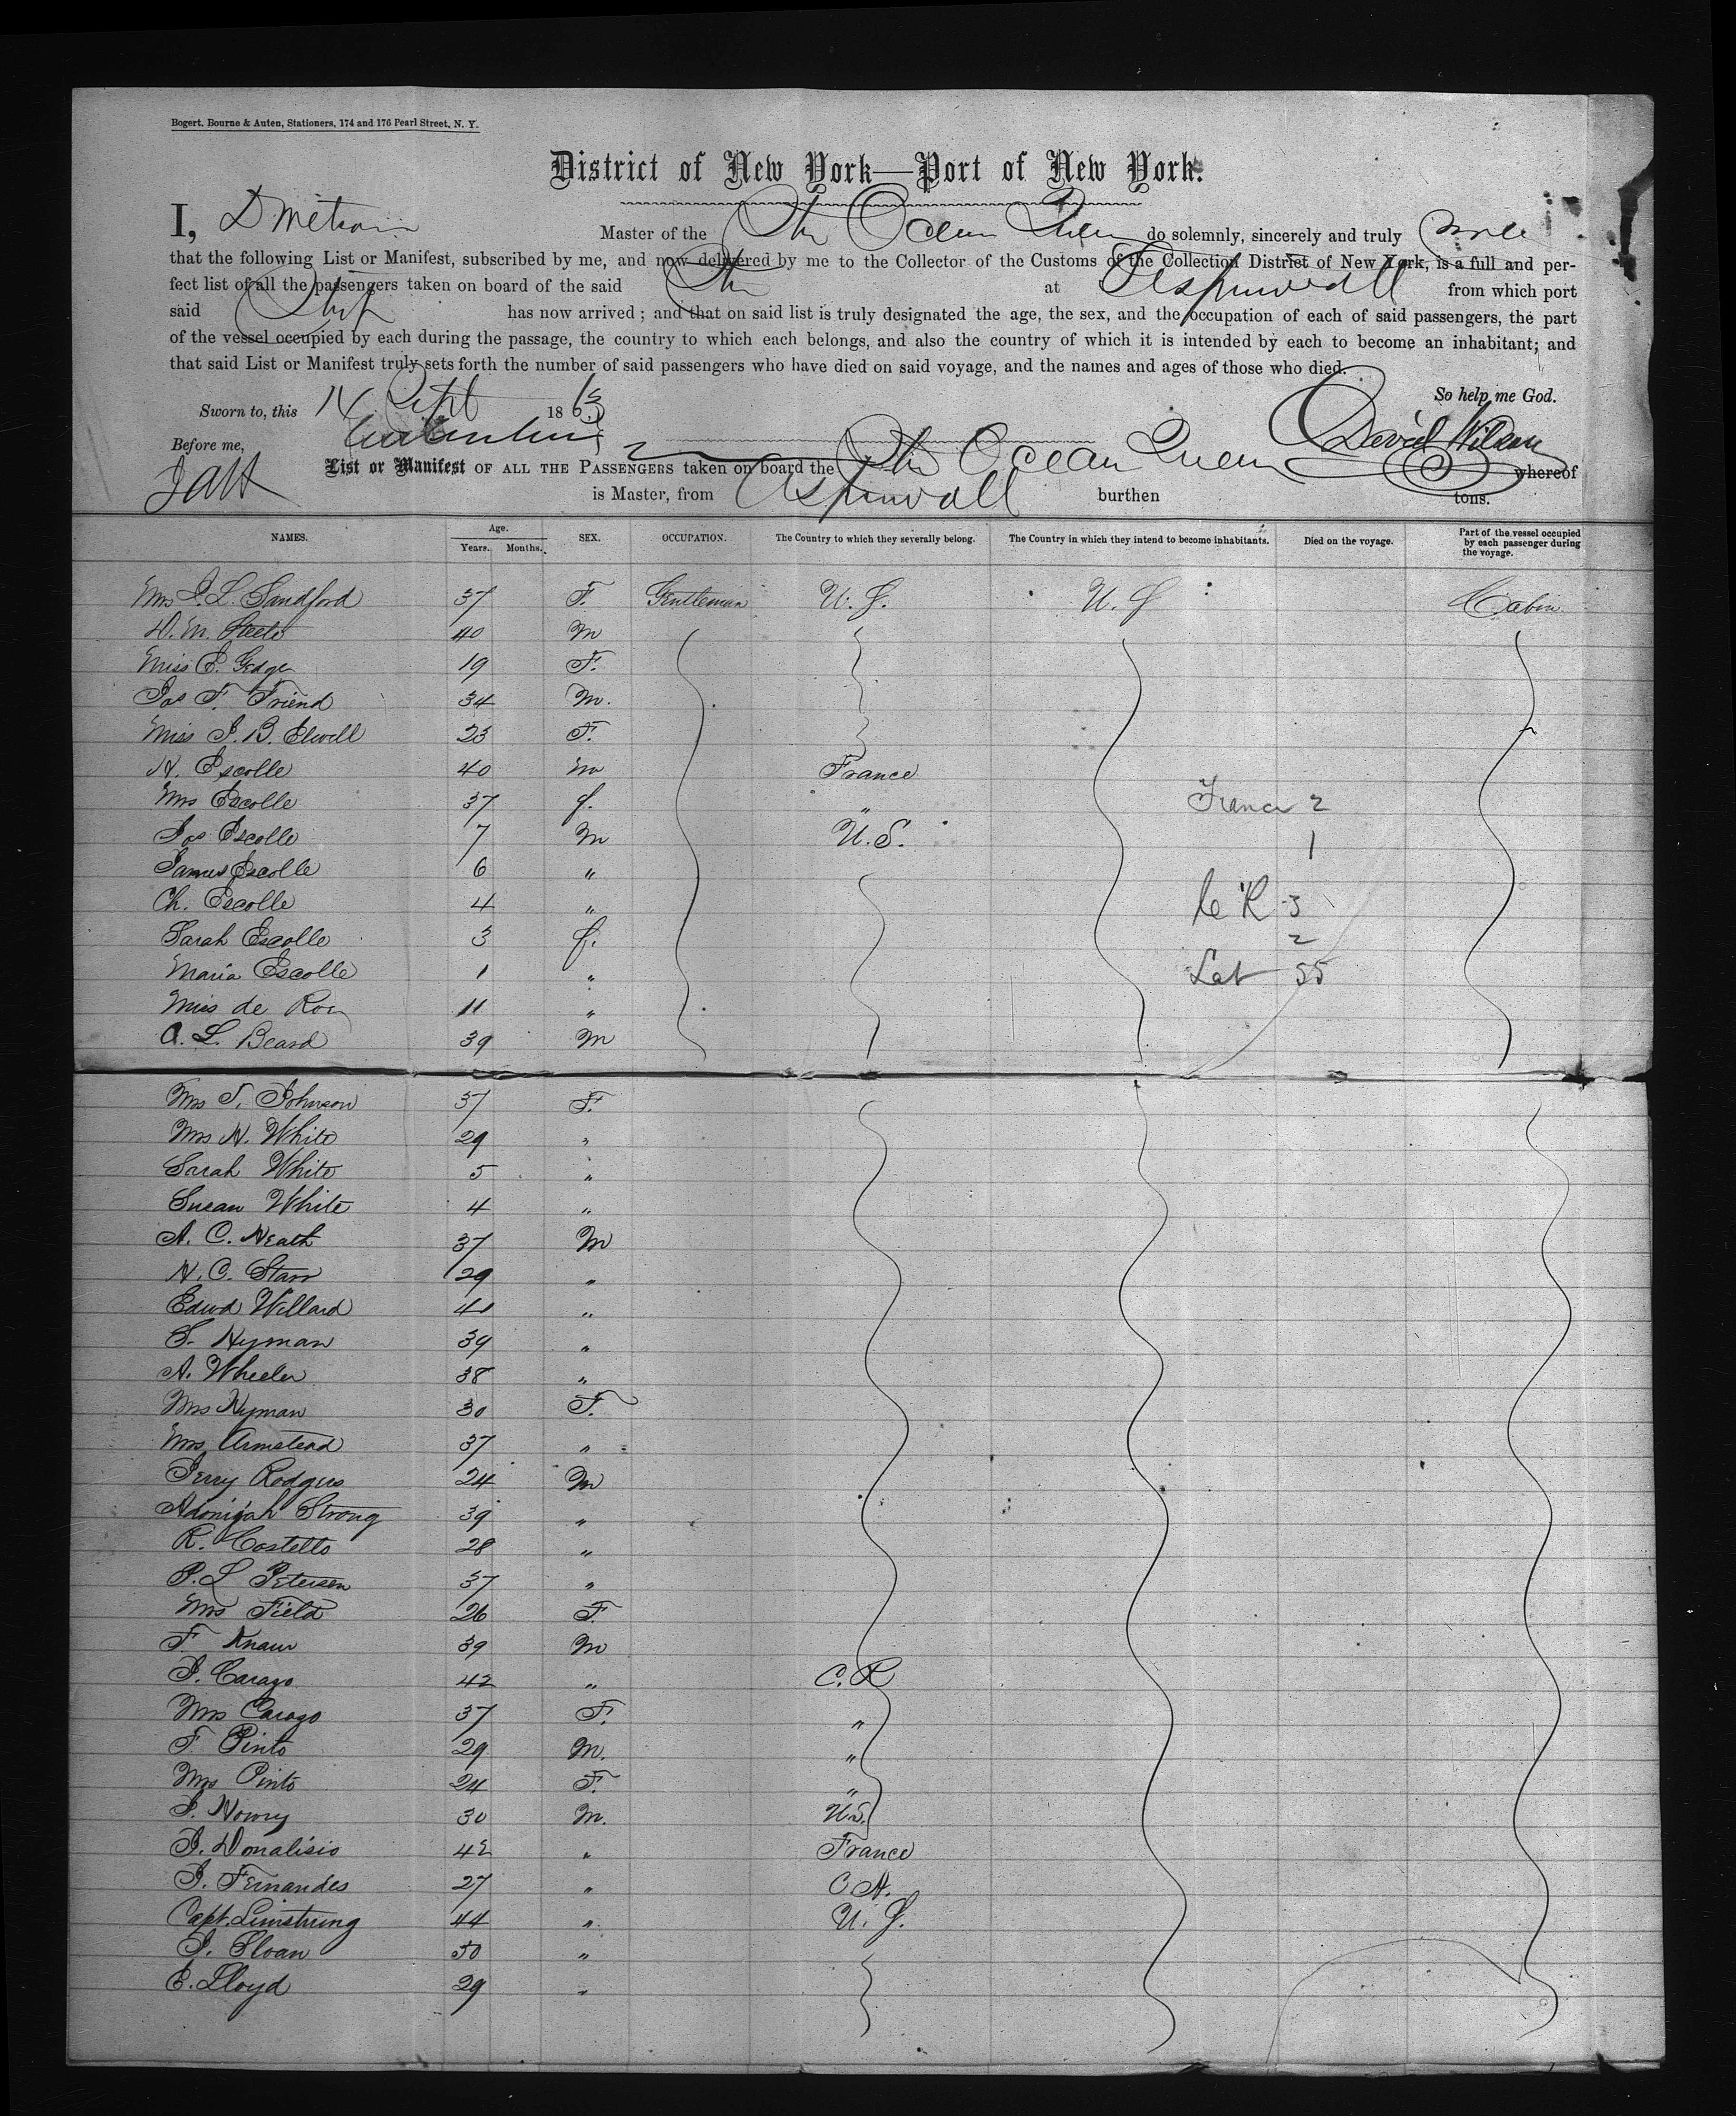 Bogert, Bourne & Auten, Stationers, 174 and 176 Pearl Street, N. Y.
District of New York—Port of New York.
I, Master of the Str Ocean Queen do solemnly, sincerely and truly
that the following List or Manifest, subscribed by me, and now delivered by me to the Collector of the Customs of the Collection District of New York, is a full and per-
fect list of all the passengers taken on board of the said Str at Aspinwall from which port
said Ship has now arrived ; and that on said list is truly designated the age, the sex, and the occupation of each of said passengers, the part
of the vessel occupied by each during the passage, the country to which each belongs, and also the country of which it is intended by each to become an inhabitant; and
that said List or Manifest truly sets forth the number of said passengers who have died on said voyage, and the names and ages of those who died.
So help me God.
Sworn to, this 14 Sept 186
Before me, David Wilson
List or Manifest OF ALL THE PASSENGERS taken on board the Str Ocean Queen whereof
is Master, from Aspinwall burthen tons.
NAMES. Age. Years. Months. SEX. OCCUPATION. The Country to which they severally belong. The Country in which they intend to become inhabitants. Died on the voyage. Part of the vessel occupied by each passenger during the voyage.
Mrs J. L. Sandford 37 F. Gentleman U. S. U. S Cabin
D. M. Steele 40 M
Miss E. Gedge 19 F.
Jos F. Friend 34 M.
Miss J. B. Elwell 23 F.
H. Escolle 40 M France
Mrs Escolle 37 f. " France 2
Jos Escolle 7 M U. S. 1
James Escolle 6 "
Ch. Escolle 4 " C R 3
Sarah Escolle 3 f. 2
Maria Escolle 1 " 55
Miss de Roy 11 "
A. L. Beard 39 M
Mrs S. Johnson 37 F.
Mrs H. White 29 "
Sarah White 5 "
Susan White 4 "
A. C. Heath 37 M
H. C. Starr 29 "
Edwd Willard 41 "
S. Hyman 39 "
A. Wheeler 38 "
Mrs Hyman 30 F.
Mrs Armstead 37 "
Jerry Rodgers 24 M
Adonijah Strong 39 "
R. Costello 28 "
P. L Petersen 37 "
Mrs Field 26 F.
F. Knaur 39 M
J. Carazo 42 " C. R
Mrs Carazo 37 F. "
F. Pinto 29 M. "
Mrs Pinto 24 F. "
J. Nowry 30 M. U S.
J. Donalisio 42 " France
J. Fernandes 27 " C A.
Capt. Limstrung 44 " U. S.
J. Sloan 50 "
E. Lloyd 29 "